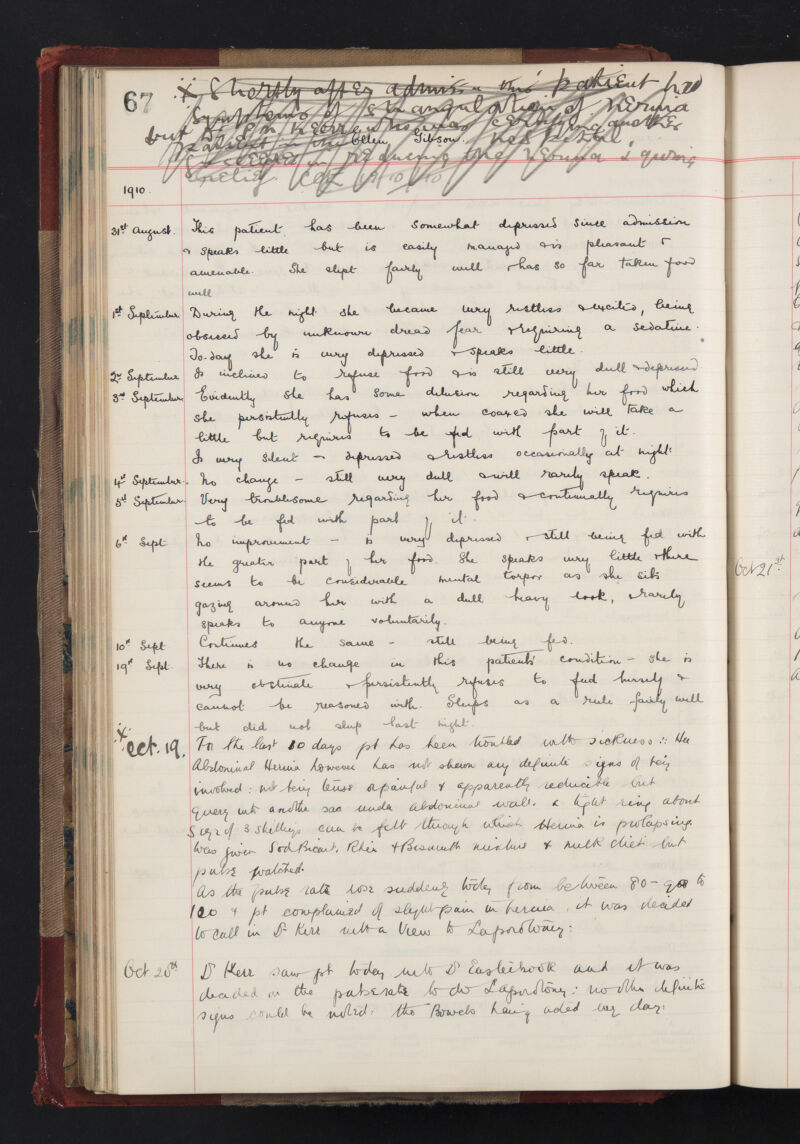 67
x Shortly after admiss. this patient had
symptoms of strangulation of Hernia
but Dr. Kerr who was certifying another
patient Ellen Gibson
succeeded in reducing the Hernia & giving
relief. 
1910.
31st August. This patient has been somewhat depressed since admission
& speaks little but is easily managed & is pleasant &
amenable. She slept fairly well & has so far taken food
well
1st September During the night she became very restless & excited, being
obsessed by unknown dread fear & requiring a sedative.
To-day she is very depressed & speaks little.
2nd September Is inclined to refuse food & is still very dull & depressed
3rd September Evidently she has some delusion regarding her food which
she persistently refuses – when coaxed she will take a
little but requires to be fed with part of it.
Is very silent – depressed & restless occasionally at night.
4th September. No change – still very dull & will rarely speak.
5th September Very troublesome regarding her food & continually requires
to be fed with part of it.
6th Sept No improvement – is very depressed & still being fed with
the greater part of her food. She speaks very little & there
seems to be considerable mental torpor as she sits
gazing around her with a dull heavy look, & rarely
speaks to anyone voluntarily.
10th Sept Continues the same – still being fed.
19th Sept. There is no change in this patients' condition – she is
very obstinate & persistently refuses to feed herself &
cannot be reasoned with. Sleeps as a rule fairly well
but did not sleep last night.
x Oct. 19. For the last 10 days pt has been troubled with sickness: Her
Abdominal Hernia however has not shewn any definite signs of being
involved: not being tense or painful & apparently reducible but
query into another sac under abdominal wall. a tight ring about
size of 3 shillings can be felt through which Hernia is prolapsing.
Was given Sod Bicarb. Rhei & Bismuth mixture & milk diet but
pulse watched.
As the pulse rate rose suddenly today from between 80-90 to
120 & pt complained of slight pain in hernia, it was decided
to call in Dr Kerr with a view to Laporotomy:
Oct 20th Dr Kerr saw pt today with Dr Easterbrook and it was
decided on the pulse rate to do Laporotomy: no other definite
signs could be noted: the Bowels having acted every day.
Oct 21st